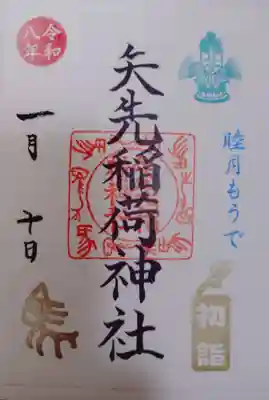 令和
八年
睦月もうで
矢先稲荷神社
一月
十日
初詣